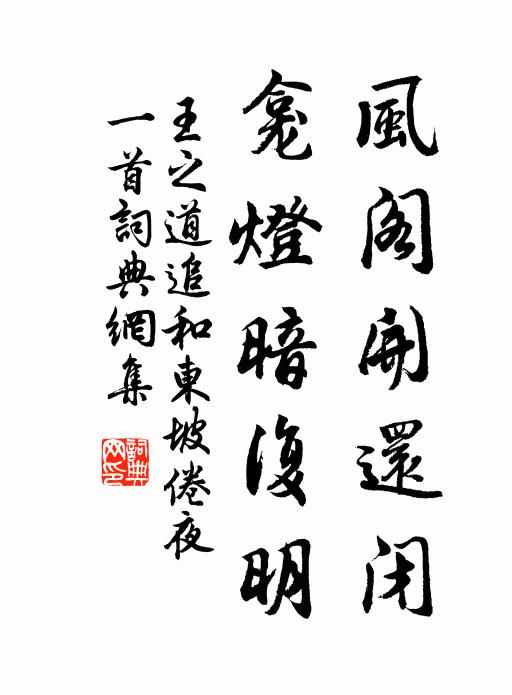 風阁開還闭
龛燈暗復明
王之道追和東坡倦夜
一首詞典網集
詞典网印